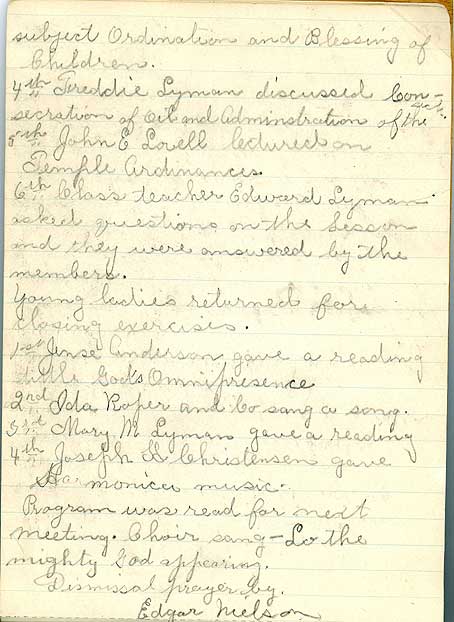 subject Ordination and Blessing of
Children.
4th Freddie Lyman discussed Con-
secration of Oil and Adminstration of the sick.
5th John E Lovell lectured on
Temple Ordinances.
6th Class teacher Edward Lyman
asked questions on the lesson
and they were answered by the
members.
Young ladies returned for
closing exercises.
1st Jense Anderson gave a reading
title God's Omnipresence
2nd Ida Roper and Co sang a song.
3rd Mary M Lyman gave a reading
4th Joseph Christensen gave
Harmonica music.
Program was read for next
meeting. Choir sang - Lo the
mighty God appearing.
Dismissal prayer by.
Edgar Nielson